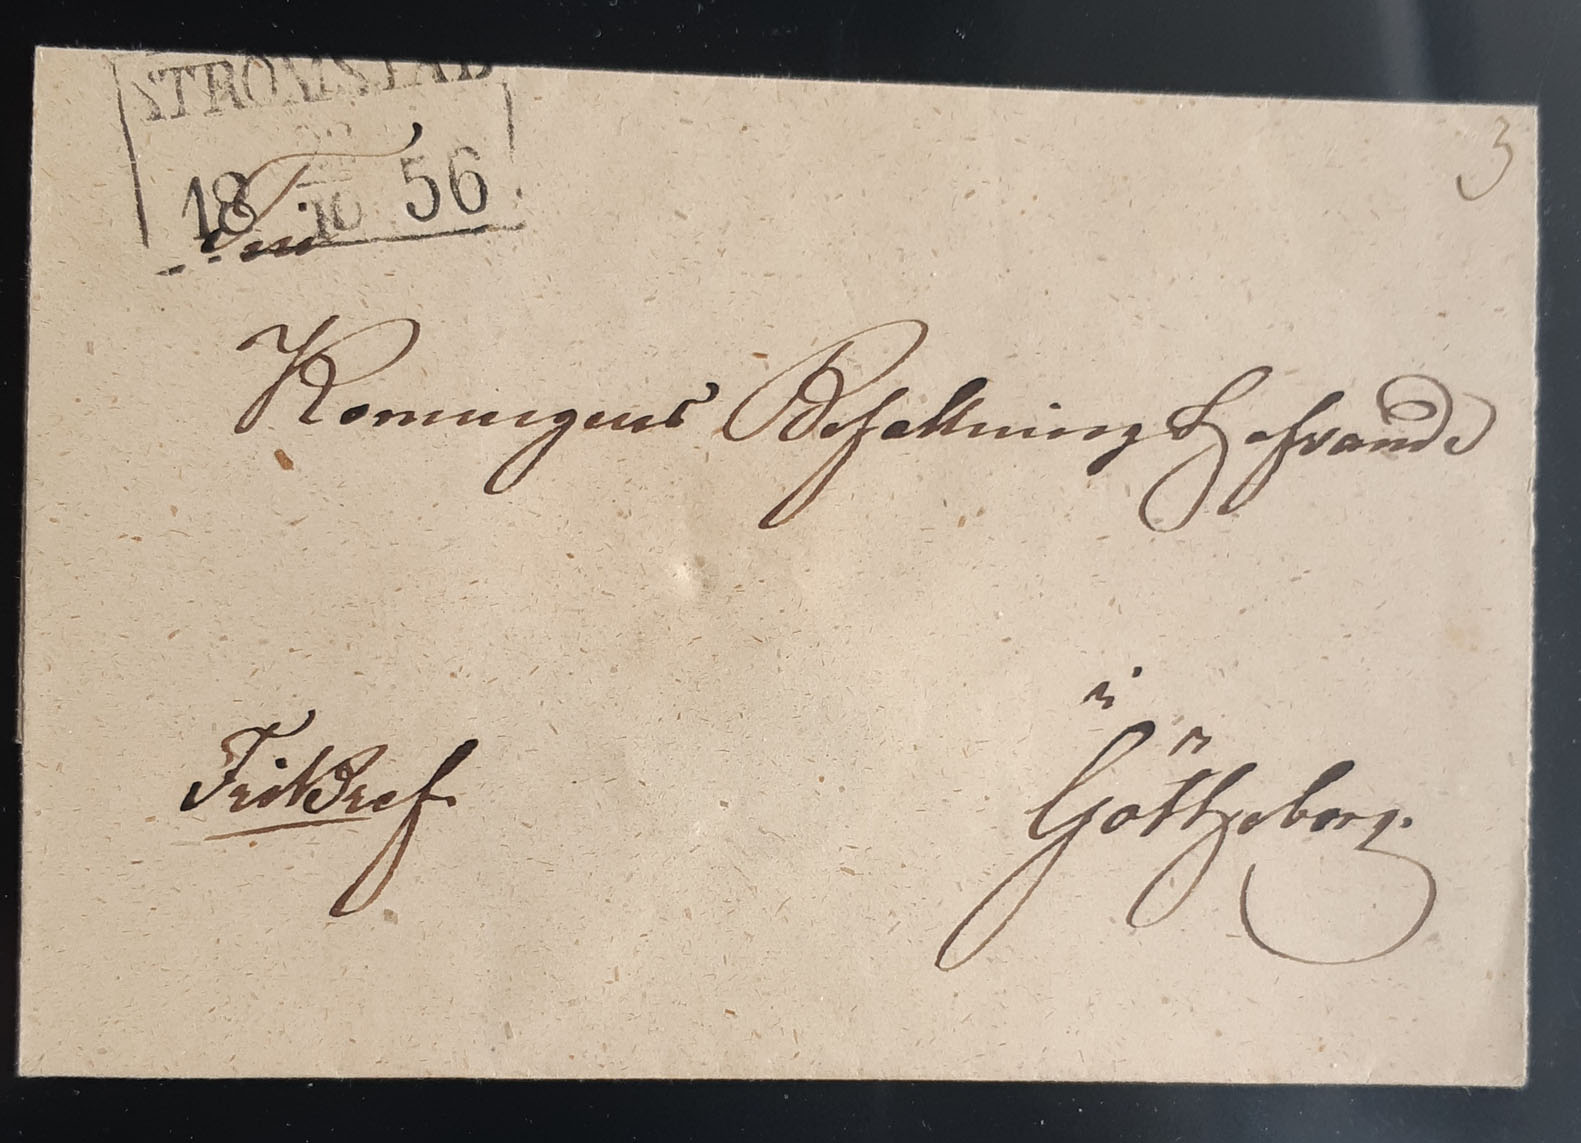 STRÖMSTAD
18 10 56
3
Till
Konungens Befallningshafvande
i
Götheborg.
Fribref.